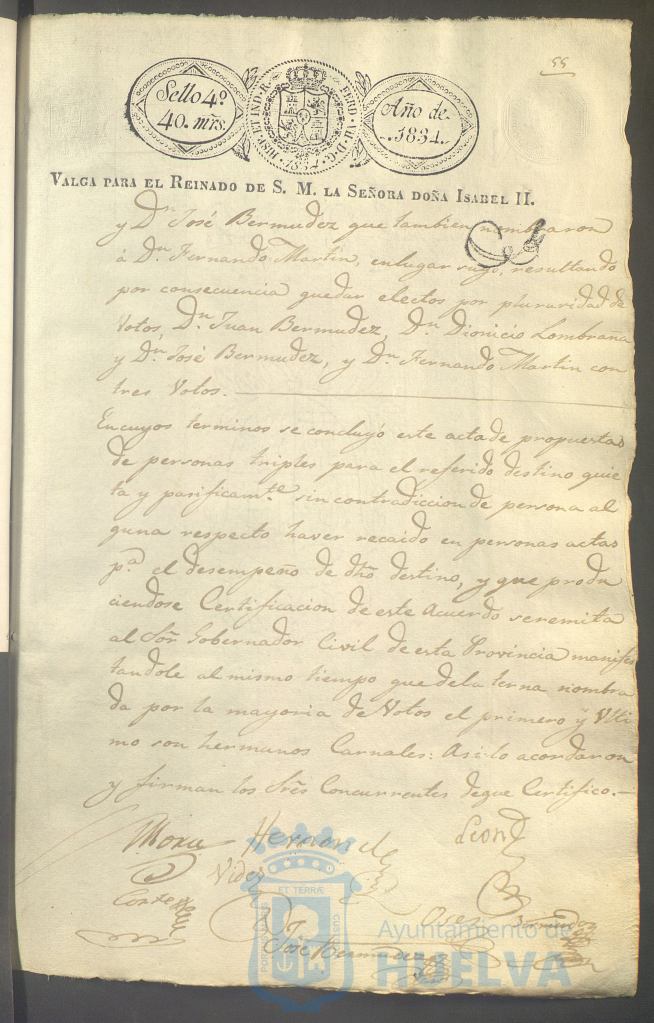 55
Sello 4º
40. mrs.
HISP. ET IND. R. FERD. VII. D. G. 1834.
Año de
1834.
VALGA PARA EL REINADO DE S. M. LA SEÑORA DOÑA ISABEL II.
y Dn. José Bermudez que tambien nombraron
á Dn. Fernando Martin, enlugar suyo, resultando
por consecuencia quedar electos por pluraridad de
Votos, Dn. Juan Bermudez, Dn. Dionicio Lombraña
y Dn. José Bermudez, y Dn. Fernando Martin con
tres Votos.
En cuyos terminos se concluyó este acta de propuestas
de personas triples para el referido destino quie
ta y pasificamte. sin contradiccion de persona al
guna respecto haver recaido en personas actas
pa. el desempeño de dho destino, y que produ
ciendose Certificacion de este Acuerdo se remita
al Sor. Gobernador Civil de esta Provincia manifes
tandole al mismo tiempo que dela terna nombra
da por la mayoria de Votos el primero y Ulti
mo son hermanos Carnales: Asi lo acordaron
y firman los Sres Concurrentes de que Certifico.
Mora Hernande Leon
Vides
Cortes
José Bermudez
ET TERRÆ
PORTUS MARIS
CUSTODIA
Ayuntamiento de
HUELVA